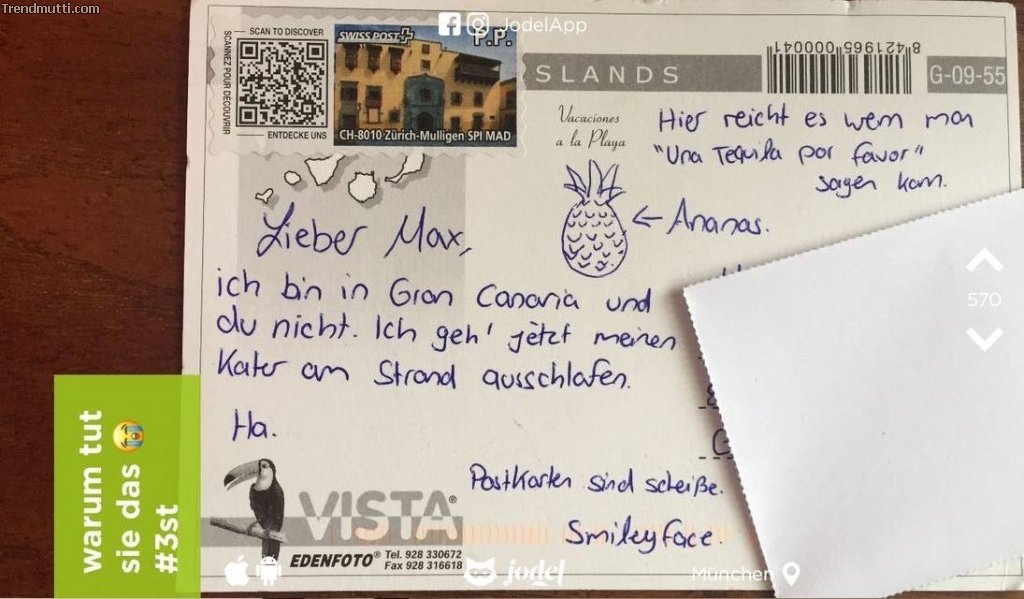 Trendmutti.com
JodelApp
SCAN TO DISCOVER
SCANNEZ POUR DÉCOUVRIR
ENTDECKE UNS
SWISS POST
P.P.
CH-8010 Zürich-Mulligen SPI MAD
SLANDS
8421965000041
G-09-55
Vacaciones
a la Playa
Hier reicht es wenn man
"Una Tequila por favor"
sagen kann.
← Ananas.
Lieber Max,
ich bin in Gran Canaria und
du nicht. Ich geh' jetzt meinen
Kater am Strand ausschlafen.
Ha.
Postkarten sind scheiße.
Smileyface.
VISTA®
EDENFOTO® Tel. 928 330672
Fax 928 316618
warum tut
sie das 😭
#3st
570
jodel
München